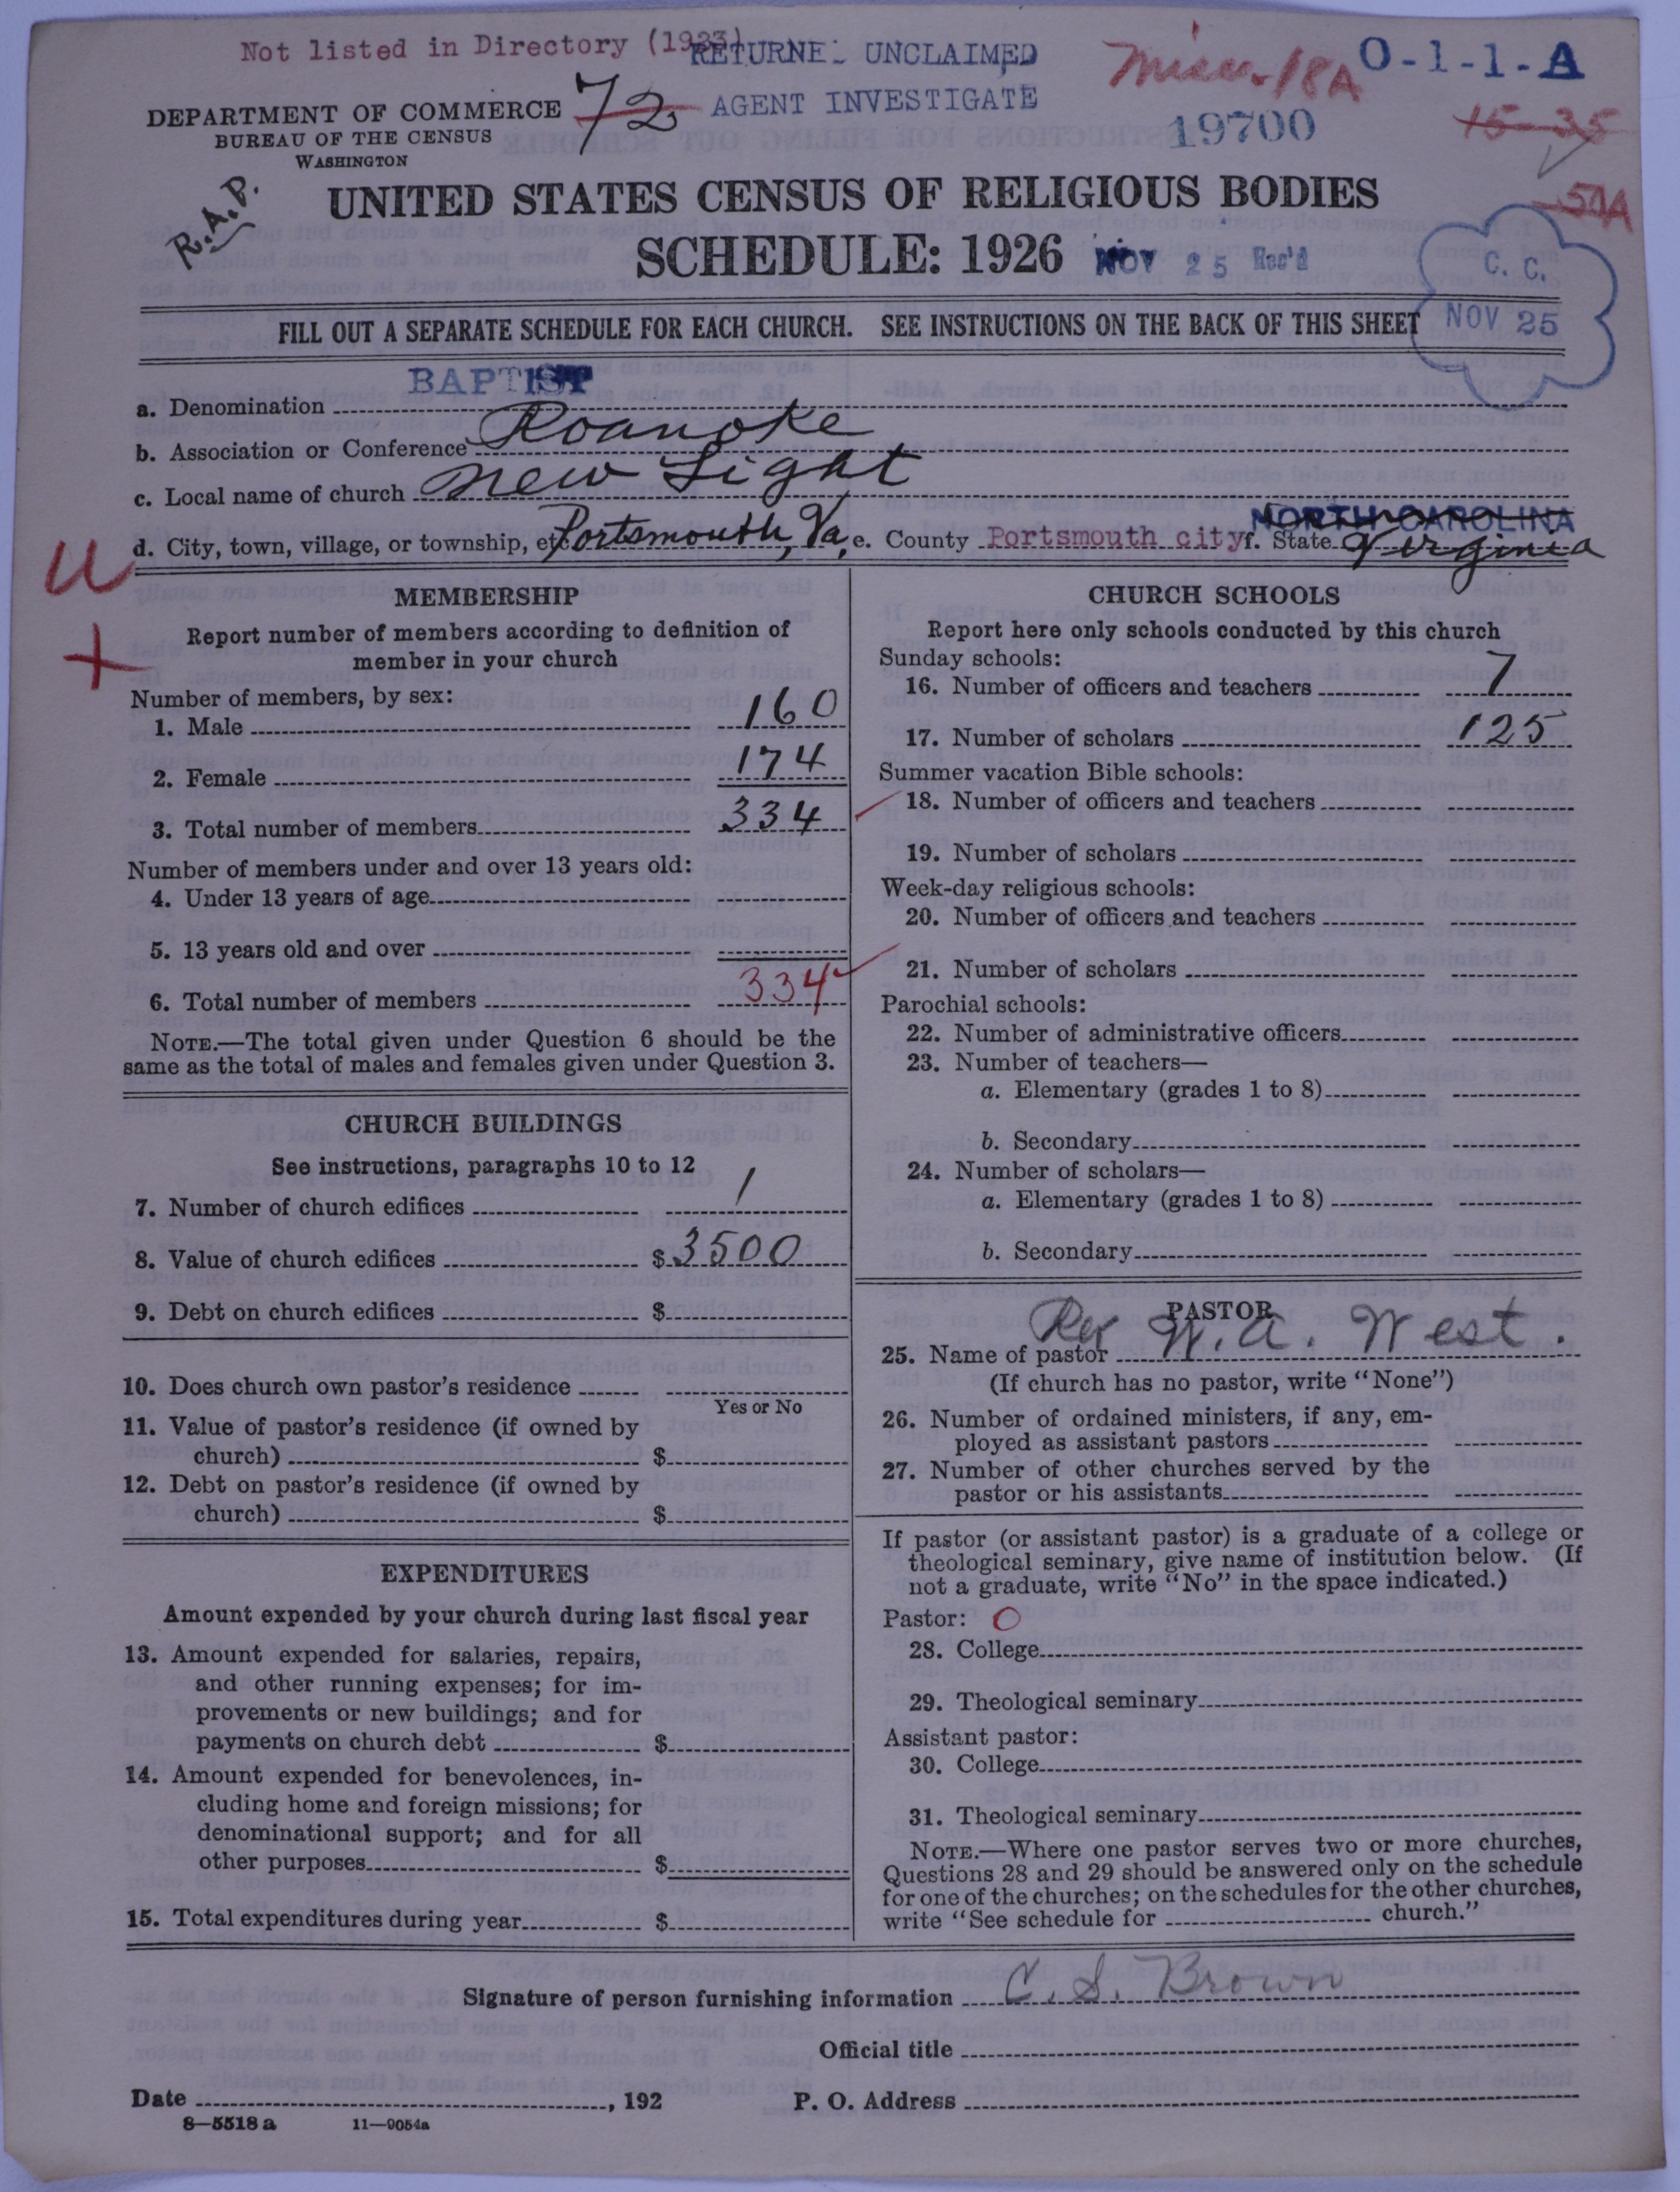 Not listed in Directory (1933)
RETURNE UNCLAIMED
AGENT INVESTIGATE
72
Misc. 18A
O-1-1-A
19700
15-35
51A
DEPARTMENT OF COMMERCE
BUREAU OF THE CENSUS
WASHINGTON
R.A.P.
UNITED STATES CENSUS OF RELIGIOUS BODIES
SCHEDULE: 1926
NOV 25 Rec'd
C. C.
NOV 25
FILL OUT A SEPARATE SCHEDULE FOR EACH CHURCH. SEE INSTRUCTIONS ON THE BACK OF THIS SHEET
a. Denomination BAPTIST
b. Association or Conference Roanoke
c. Local name of church New Light
d. City, town, village, or township, etc. Portsmouth, Va, e. County Portsmouth city f. State NORTH CAROLINA Virginia
U
+
MEMBERSHIP
Report number of members according to definition of
member in your church
Number of members, by sex:
1. Male 160
2. Female 174
3. Total number of members 334
Number of members under and over 13 years old:
4. Under 13 years of age
5. 13 years old and over
6. Total number of members 334
NOTE.—The total given under Question 6 should be the
same as the total of males and females given under Question 3.
CHURCH BUILDINGS
See instructions, paragraphs 10 to 12
7. Number of church edifices 1
8. Value of church edifices $3500
9. Debt on church edifices $
10. Does church own pastor's residence
Yes or No
11. Value of pastor's residence (if owned by
church) $
12. Debt on pastor's residence (if owned by
church) $
EXPENDITURES
Amount expended by your church during last fiscal year
13. Amount expended for salaries, repairs,
and other running expenses; for im-
provements or new buildings; and for
payments on church debt $
14. Amount expended for benevolences, in-
cluding home and foreign missions; for
denominational support; and for all
other purposes $
15. Total expenditures during year $
CHURCH SCHOOLS
Report here only schools conducted by this church
Sunday schools:
16. Number of officers and teachers 7
17. Number of scholars 125
Summer vacation Bible schools:
18. Number of officers and teachers
19. Number of scholars
Week-day religious schools:
20. Number of officers and teachers
21. Number of scholars
Parochial schools:
22. Number of administrative officers
23. Number of teachers—
a. Elementary (grades 1 to 8)
b. Secondary
24. Number of scholars—
a. Elementary (grades 1 to 8)
b. Secondary
PASTOR
25. Name of pastor Rev W. A. West.
(If church has no pastor, write "None")
26. Number of ordained ministers, if any, em-
ployed as assistant pastors
27. Number of other churches served by the
pastor or his assistants
If pastor (or assistant pastor) is a graduate of a college or
theological seminary, give name of institution below. (If
not a graduate, write "No" in the space indicated.)
Pastor: O
28. College
29. Theological seminary
Assistant pastor:
30. College
31. Theological seminary
NOTE.—Where one pastor serves two or more churches,
Questions 28 and 29 should be answered only on the schedule
for one of the churches; on the schedules for the other churches,
write "See schedule for church."
Signature of person furnishing information C. S. Brown
Official title
Date , 192 P. O. Address
8—5518 a 11—9054a